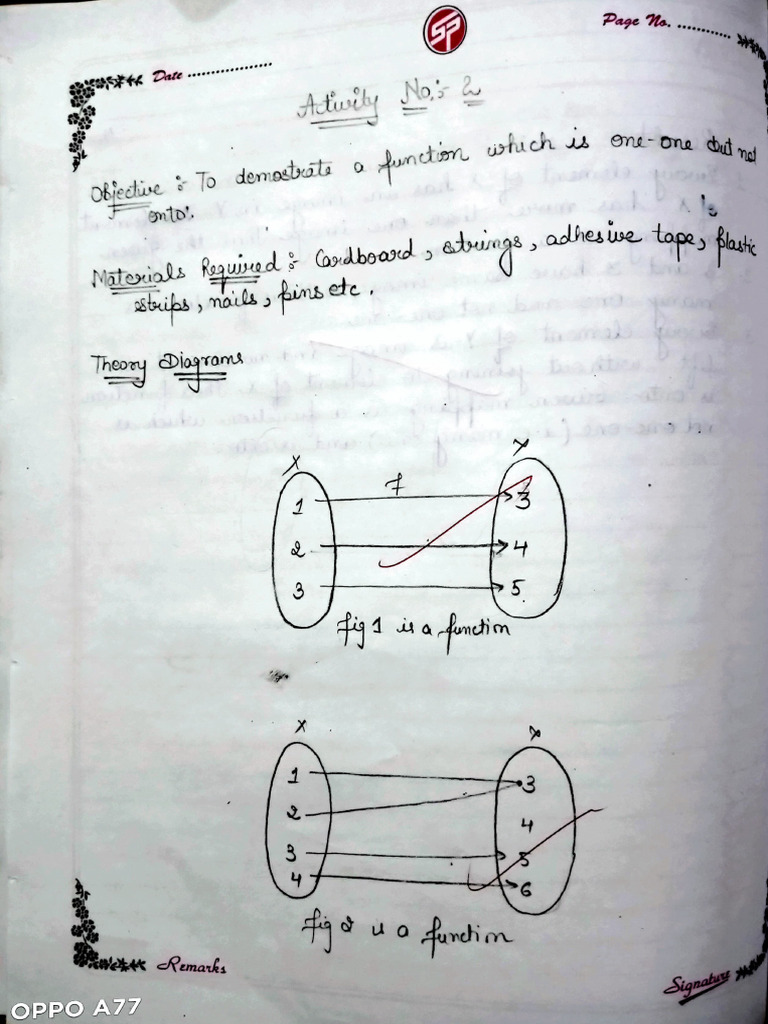 SP
Page No. ..............
Date ......................
Activity No:- 2
Objective :- To demostrate a function which is one-one but not
onto.
Materials Required :- Cardboard, strings, adhesive tape, plastic
strips, nails, pins etc.
Theory Diagrams
X
f
1
3
2
4
3
5
fig 1 is a function
X
1
3
2
4
3
5
4
6
fig 2 is a function
Remarks
Signature
OPPO A77